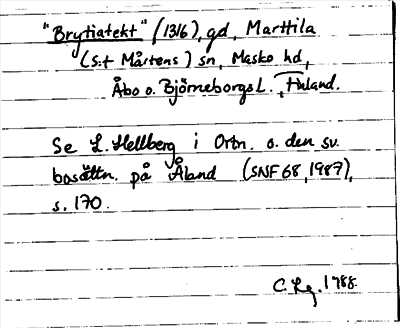 "Brytiatekt" (1316), gd, Marttila
(S:t Mårtens) sn, Masko hd,
Åbo o. Björneborgs L., Finland.
Se L. Hellberg i Ortn. o. den sv.
bosättn. på Åland (SNF 68, 1987),
s. 170.
C. Lg. 1988.